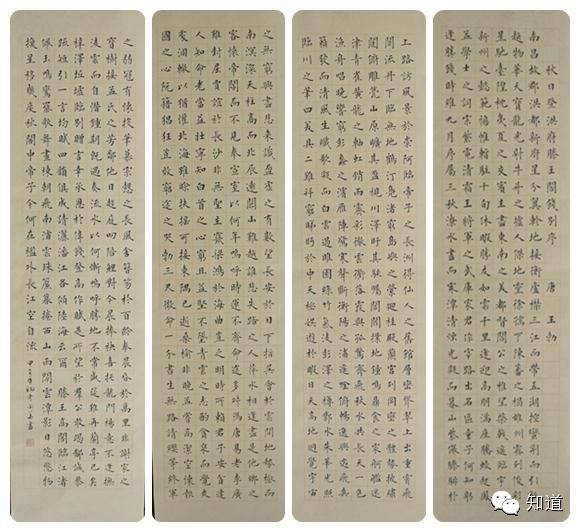 秋日登洪府滕王閣餞別序 唐 王勃
南昌故郡洪都新府星分翼軫地接衡廬襟三江而帶五湖控蠻荊而引
甌越物華天寶龍光射牛斗之墟人傑地靈徐孺下陳蕃之榻雄州霧列俊彩
星馳臺隍枕夷夏之交賓主盡東南之美都督閻公之雅望棨戟遙臨宇文
新州之懿範襜帷暫駐十旬休暇勝友如雲千里逢迎高朋滿座騰蛟起鳳
孟學士之詞宗紫電清霜王將軍之武庫家君作宰路出名區童子何知躬
逢勝餞時維九月序屬三秋潦水盡而寒潭清煙光凝而暮山紫儼驂騑於
上路訪風景於崇阿臨帝子之長洲得仙人之舊館層巒聳翠上出重霄飛
閣流丹下臨無地鶴汀鳧渚窮島嶼之縈迴桂殿蘭宮列岡巒之體勢披繡
闥俯雕甍山原曠其盈視川澤盱其駭矚閭閻撲地鐘鳴鼎食之家舸艦迷
津青雀黃龍之軸虹銷雨霽彩徹雲衢落霞與孤鶩齊飛秋水共長天一色
漁舟唱晚響窮彭蠡之濱雁陣驚寒聲斷衡陽之浦遙吟俯暢逸興遄飛爽
籟發而清風生纖歌凝而白雲遏睢園綠竹氣凌彭澤之樽鄴水朱華光照
臨川之筆四美具二難并窮睇眄於中天極娛遊於暇日天高地迥覺宇宙
之無窮興盡悲來識盈虛之有數望長安於日下指吳會於雲間地勢極而
南溟深天柱高而北辰遠關山難越誰悲失路之人萍水相逢盡是他鄉之
客懷帝閽而不見奉宣室以何年嗚呼時運不齊命途多舛馮唐易老李廣
難封屈賈誼於長沙非無聖主竄梁鴻於海曲豈乏明時所賴君子安貧達
人知命老當益壯寧知白首之心窮且益堅不墜青雲之志酌貪泉而覺爽
處涸轍以猶懽北海雖賒扶搖可接東隅已逝桑榆非晚孟嘗高潔空懷報
國之心阮籍猖狂豈效窮途之哭勃三尺微命一介書生無路請纓等終軍
之弱冠有懷投筆慕宗慤之長風舍簪笏於百齡奉晨昏於萬里非謝家之
寶樹接孟氏之芳鄰他日趨庭叨陪鯉對今晨捧袂喜托龍門楊意不逢撫
凌雲而自惜鍾期既遇奏流水以何慚嗚呼勝地不常盛筵難再蘭亭已矣
梓澤丘墟臨別贈言幸承恩於偉餞登高作賦是所望於羣公敢竭鄙誠恭
疏短引一言均賦四韻俱成請灑潘江各傾陸海云爾 滕王高閣臨江渚
佩玉鳴鸞罷歌舞畫棟朝飛南浦雲珠簾暮捲西山雨閒雲潭影日悠悠物
換星移幾度秋閣中帝子今何在檻外長江空自流
知道